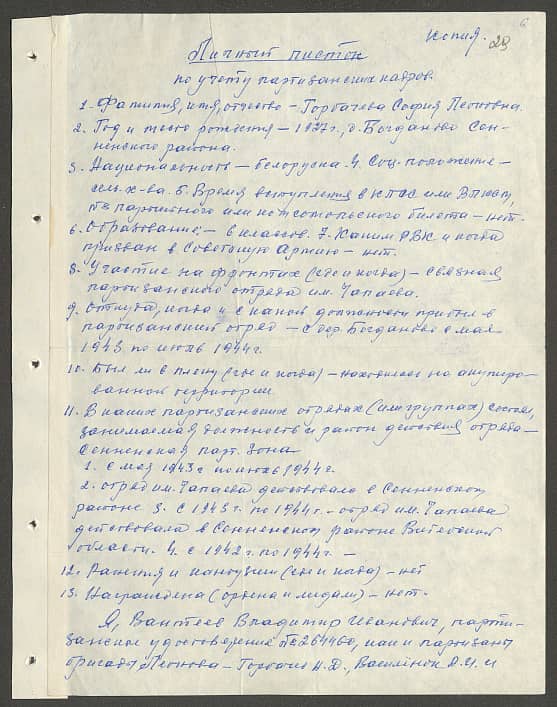 6
Копия. 29
Личный листок
по учету партизанских кадров.
1. Фамилия, имя, отчество – Горбачева София Леоновна.
2. Год и место рождения – 1927г., д. Богданово Сен-
ненского района.
3. Национальность – белоруска. 4. Соц. положение –
сель. х-ва. 5. Время вступления в КПСС или ВЛКСМ,
№ партийного или комсомольского билета – нет.
6. Образование – 6 классов. 7. Каким РВК и когда
призван в Советскую Армию – нет.
8. Участие на фронтах (где и когда) – связная
партизанского отряда им. Чапаева.
9. Откуда, когда и с какой должности прибыл в
партизанский отряд – с дер. Богданово с мая
1943 по июль 1944г.
10. Был ли в плену (где и когда) – находилась на окупиро-
ванной территории
11. В каких партизанских отрядах (или группах) состоял,
занимаемая должность и район действия отряда –
Сенненская парт. зона
1. с мая 1943г по июль 1944г.
2. отряд им. Чапаева действовала в Сенненском
районе 3. с 1943г. по 1944г. – отряд им. Чапаева
действовала в Сенненском районе Витебской
области. 4. с 1942г. по 1944г. –
12. Ранения и контузии (где и когда) – нет
13. Награждена (ордена и медали) – нет.
Я, Вантеев Владимир Иванович, парти-
занское удостоверение № 264460, как и партизаны
бригады Леонова – А.Д., Василёнок и